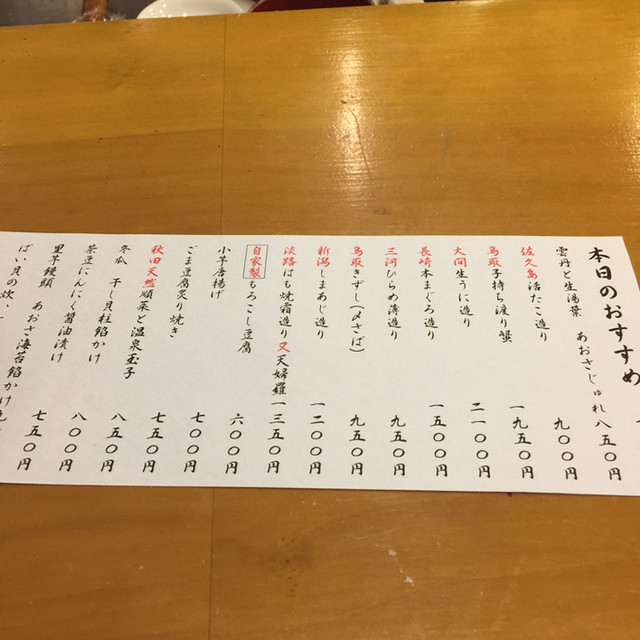 本日のおすすめ
雲丹と生湯葉 あおさじゅれ 八五〇円
佐久島活たこ造り 九〇〇円
鳥取子持ち渡り蟹 一九五〇円
大間生うに造り 二一〇〇円
長崎本まぐろ造り 一五〇〇円
三河ひらめ薄造り 九五〇円
鳥取きずし(〆さば) 九五〇円
新潟しまあじ造り 一二〇〇円
淡路はも焼霜造り又天婦羅 一三五〇円
自家製もろこし豆腐 六〇〇円
小芋唐揚げ 七〇〇円
ごま豆腐炙り焼き 七五〇円
秋田天然順菜と温泉玉子 八五〇円
冬瓜 干し貝柱餡かけ 八〇〇円
茶豆にんにく醤油漬け 七五〇円
里芋饅頭 あおさ海苔餡かけ
ばい貝の炊